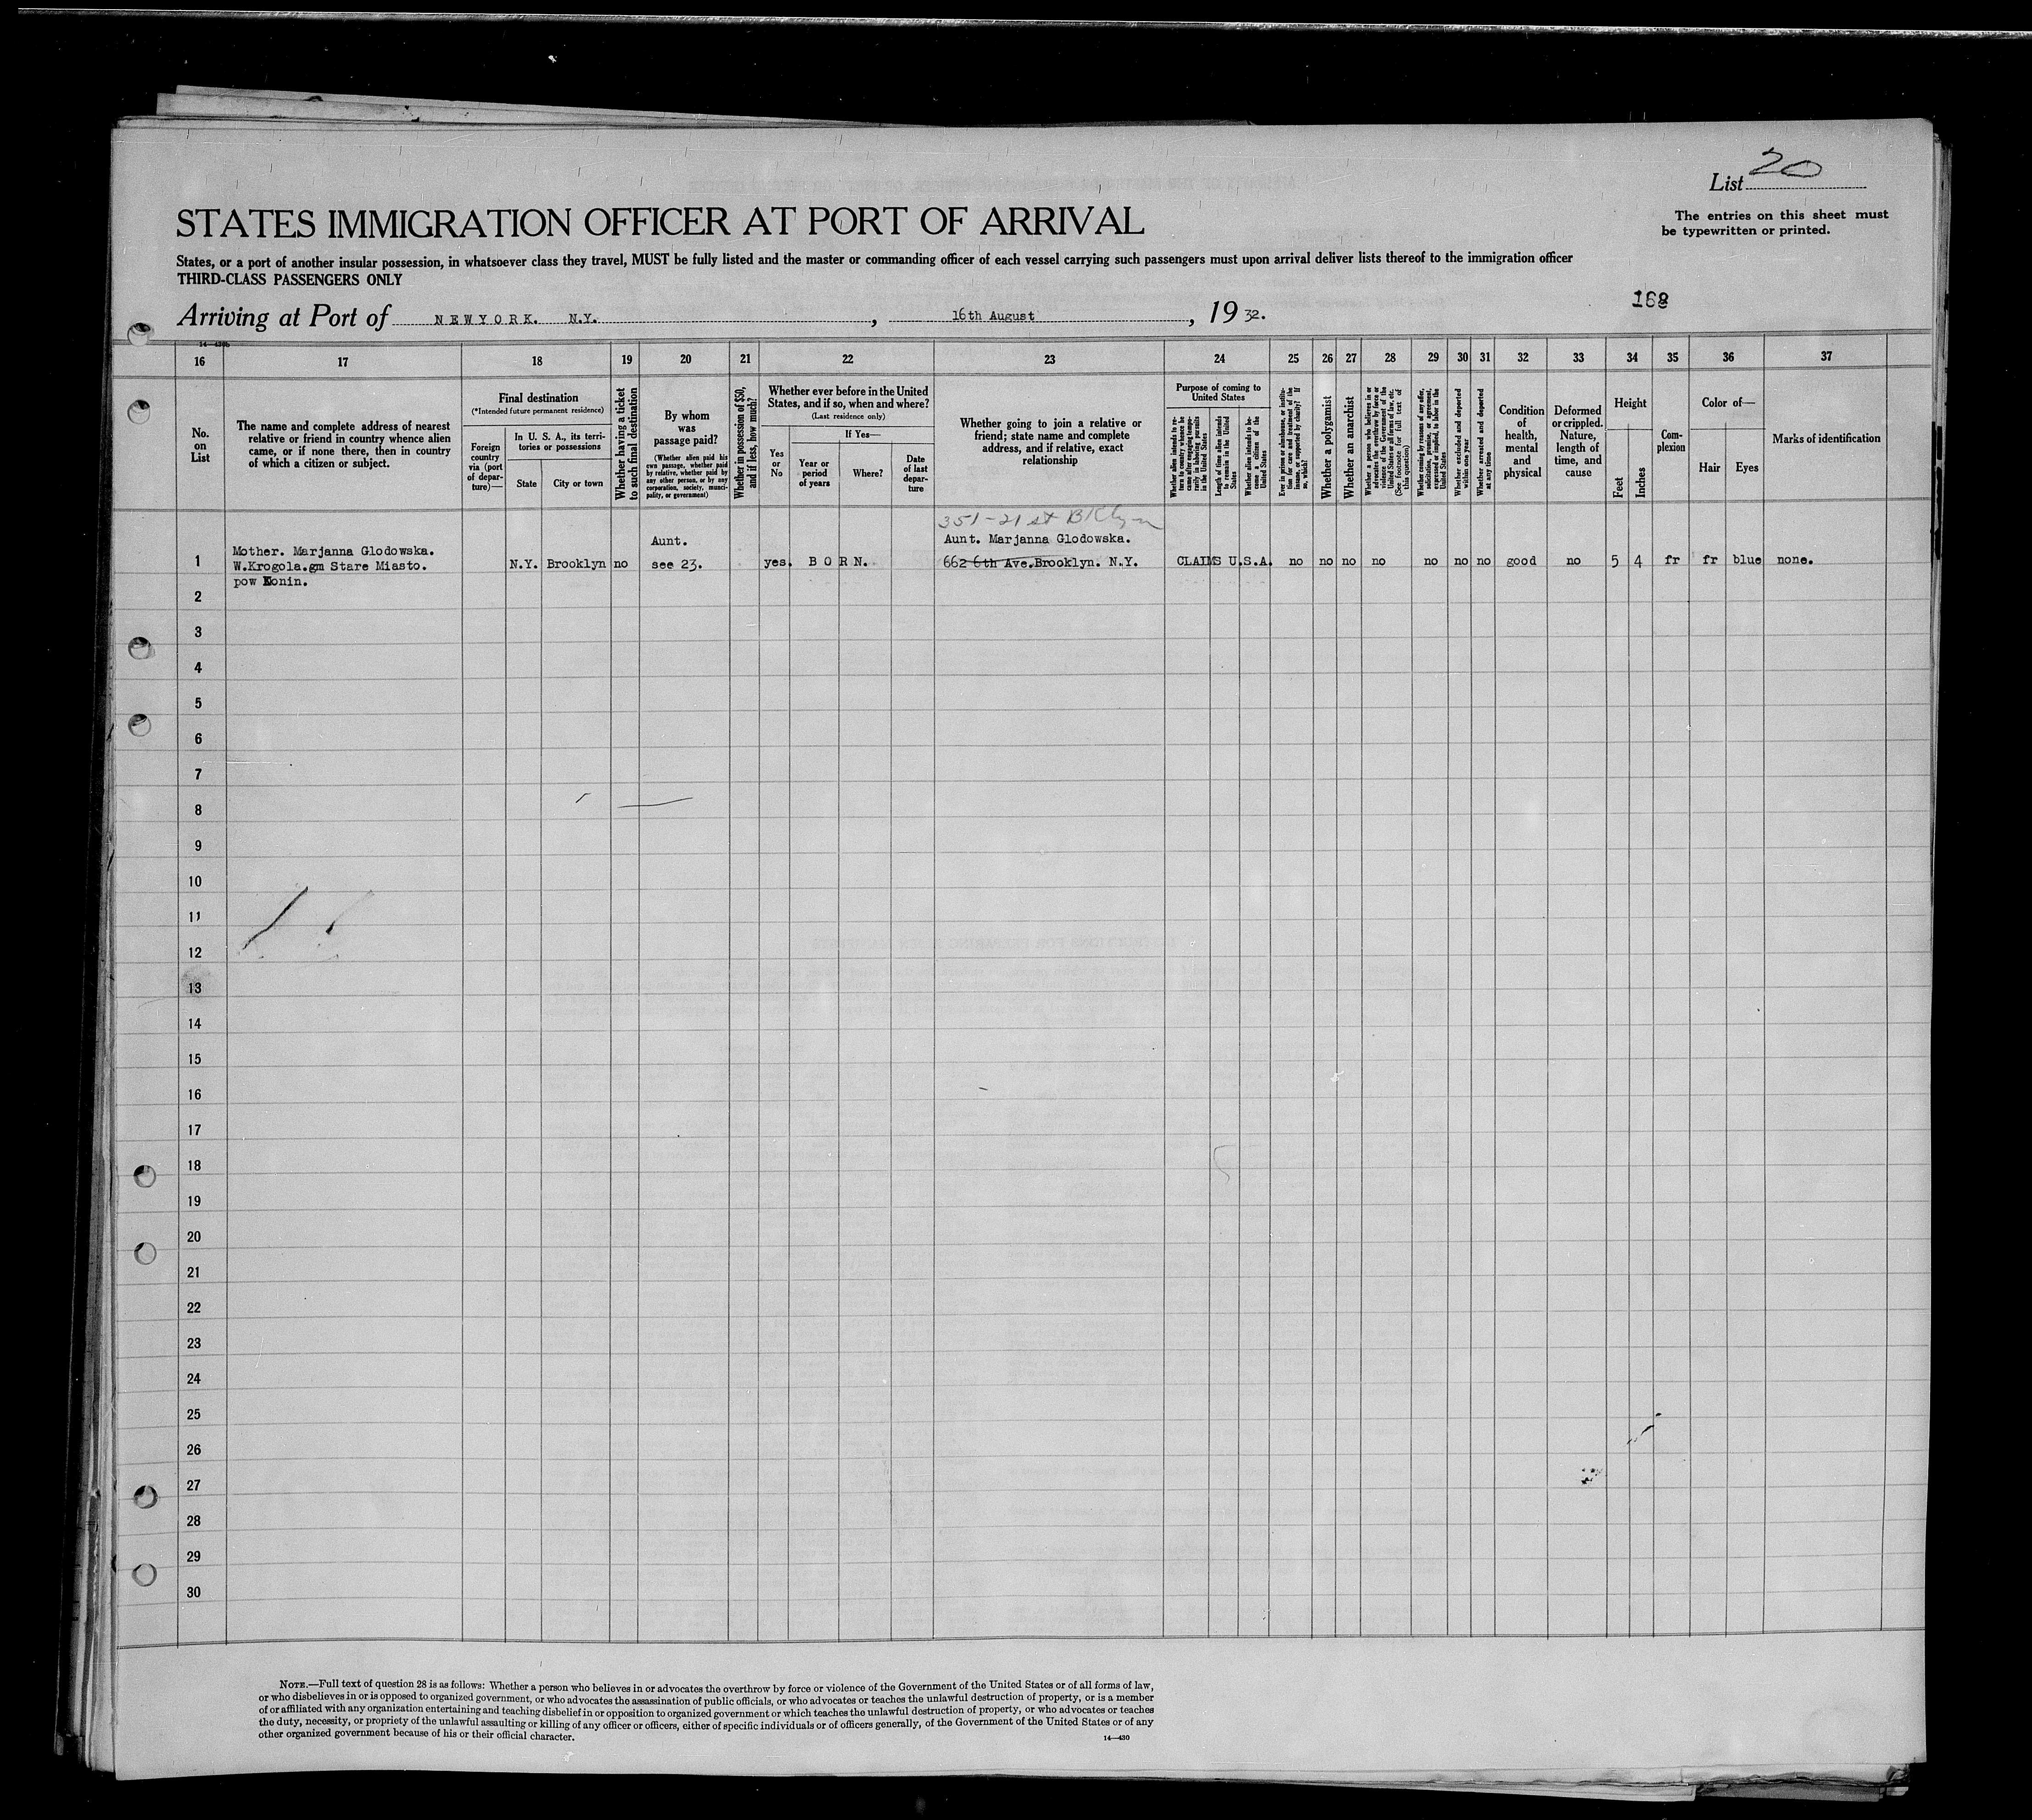 List 20
The entries on this sheet must
be typewritten or printed.
STATES IMMIGRATION OFFICER AT PORT OF ARRIVAL
States, or a port of another insular possession, in whatsoever class they travel, MUST be fully listed and the master or commanding officer of each vessel carrying such passengers must upon arrival deliver lists thereof to the immigration officer
THIRD-CLASS PASSENGERS ONLY
168
Arriving at Port of NEWYORK. N.Y. , 16th August , 19 32.
16 17 18 19 20 21 22 23 24 25 26 27 28 29 30 31 32 33 34 35 36 37
No.
on
List
The name and complete address of nearest
relative or friend in country whence alien
came, or if none there, then in country
of which a citizen or subject.
Final destination
(*Intended future permanent residence)
Foreign
country
via (port
of depar-
ture)—
In U. S. A., its terri-
tories or possessions
State
City or town
Whether having a ticket
to such final destination
By whom
was
passage paid?
(Whether alien paid his
own passage, whether paid
by relative, whether paid by
any other person, or by any
corporation, society, munici-
pality, or government)
Whether in possession of $50,
and if less, how much?
Whether ever before in the United
States, and if so, when and where?
(Last residence only)
Yes
or
No
If Yes—
Year or
period
of years
Where?
Date
of last
depar-
ture
Whether going to join a relative or
friend; state name and complete
address, and if relative, exact
relationship
Purpose of coming to
United States
Whether alien intends to re-
turn to country whence he
came after engaging tempo-
rarily in laboring pursuits
in the United States
Length of time alien intends
to remain in the United
States
Whether alien intends to be-
come a citizen of the
United States
Ever in prison or almshouse, or institu-
tion for care and treatment of the
insane, or supported by charity? If
so, which?
Whether a polygamist
Whether an anarchist
Whether a person who believes in or
advocates the overthrow by force or
violence of the Government of the
United States or all forms of law, etc.
(See footnote for full text of
this question)
Whether coming by reasons of any offer,
solicitation, promise, or agreement,
expressed or implied, to labor in the
United States
Whether excluded and deported
within one year
Whether arrested and deported
at any time
Condition
of
health,
mental
and
physical
Deformed
or crippled.
Nature,
length of
time, and
cause
Height
Feet
Inches
Com-
plexion
Color of—
Hair
Eyes
Marks of identification
351-21 st Bklyn
1 Mother. Marjanna Glodowska.
W.Krogola.gm Stare Miasto.
pow Konin.
N.Y. Brooklyn no
Aunt.
see 23.
yes. BORN.
Aunt. Marjanna Glodowska.
662 6th Ave.Brooklyn. N.Y.
CLAIMS U.S.A. no no no no no no no good no 5 4 fr fr blue none.
2
3
4
5
6
7
8
9
10
11
12
13
14
15
16
17
18
19
20
21
22
23
24
25
26
27
28
29
30
NOTE.—Full text of question 28 is as follows: Whether a person who believes in or advocates the overthrow by force or violence of the Government of the United States or of all forms of law,
or who disbelieves in or is opposed to organized government, or who advocates the assassination of public officials, or who advocates or teaches the unlawful destruction of property, or is a member
of or affiliated with any organization entertaining and teaching disbelief in or opposition to organized government or which teaches the unlawful destruction of property, or who advocates or teaches
the duty, necessity, or propriety of the unlawful assaulting or killing of any officer or officers, either of specific individuals or of officers generally, of the Government of the United States or of any
other organized government because of his or their official character.
14—430